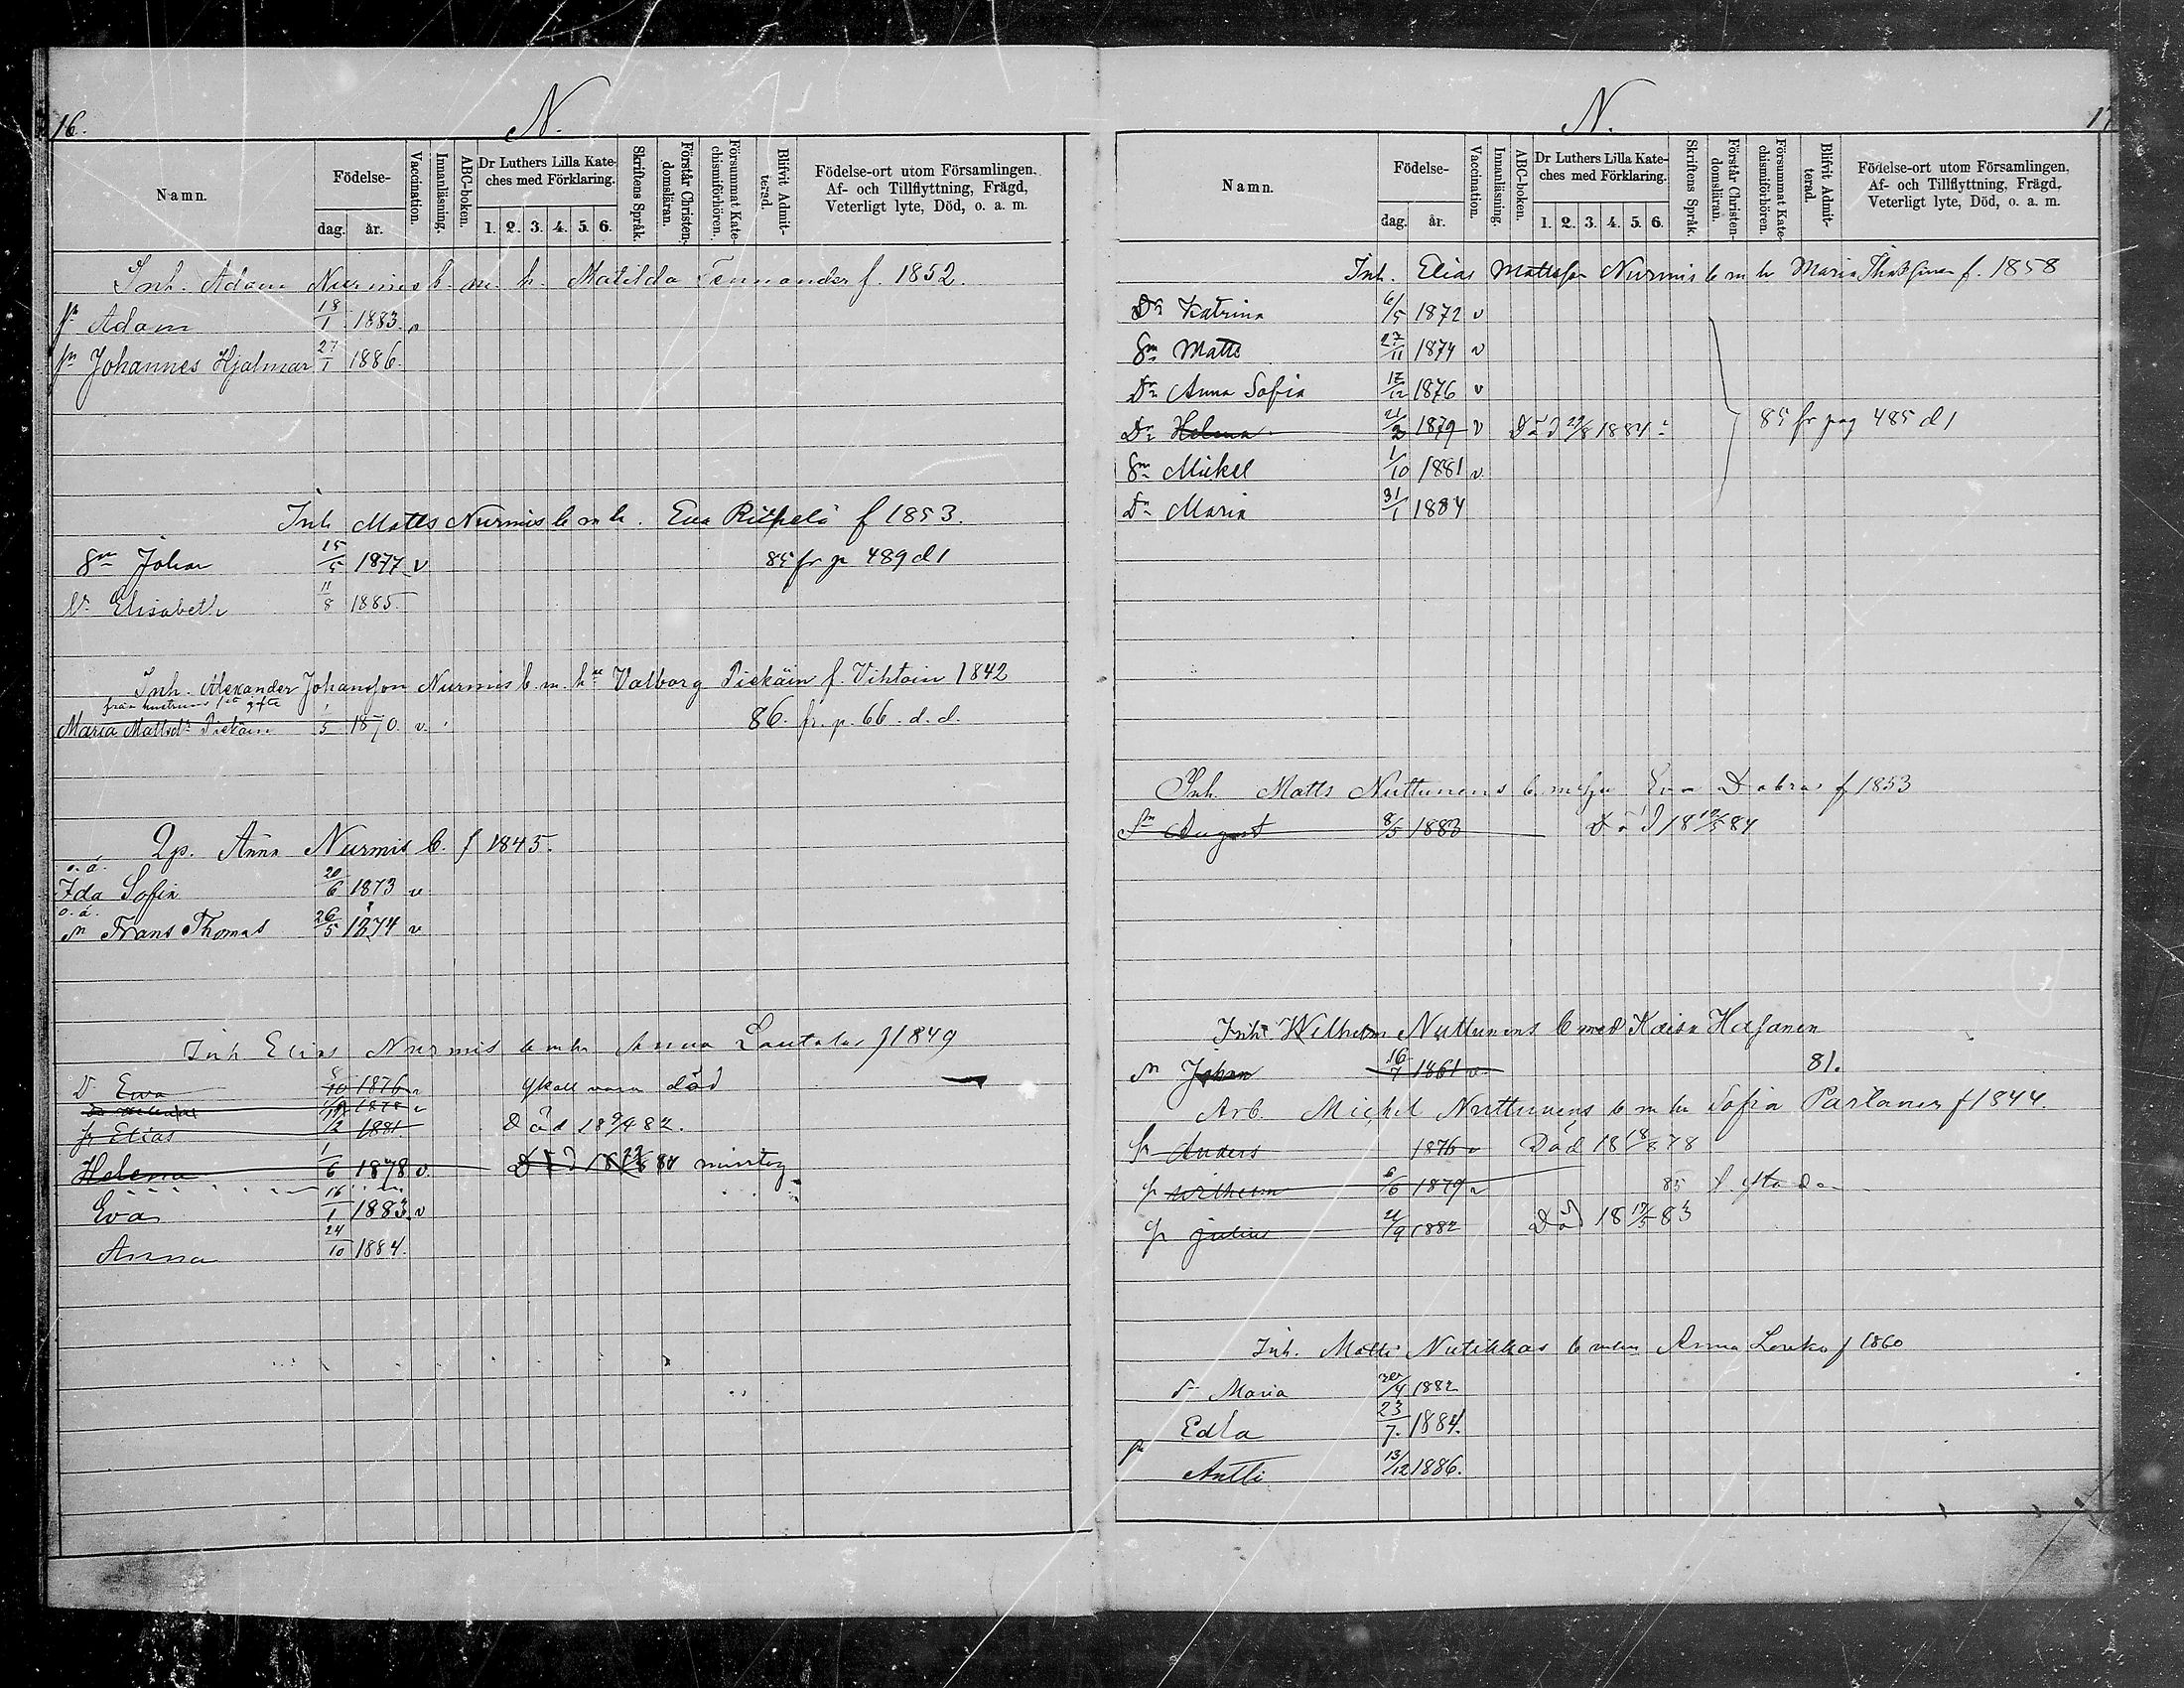 16.
N.
Namn.
Födelse-
dag. år.
Vaccination.
Innanläsning.
ABC-boken.
Dr Luthers Lilla Kate-
ches med Förklaring.
1. 2. 3. 4. 5. 6.
Skriftens Språk.
Förstår Christen-
domsläran.
Försummat Kate-
chismiförhören.
Blifvit Admit-
terad.
Födelse-ort utom Församlingen.
Af- och Tillflyttning, Frägd,
Veterligt lyte, Död, o. a. m.
Inh. Adam Nurmis b. m. h. Matilda f. 1852.
Adam 18/1 1883. v
Johannes Hjalmar 27/1 1886.
Inh Matts Nurmis b m h. Eva f 1853.
Sn Johan 15/5 1877 v 85 fr p 489 d 1
Dr Elisabeth 11/8 1885.
Inh. Alexander Johansson Nurmis b. m. h Valborg Piekäin f. 1842
från hustruns 1sta gifte
Maria Mattsdr Piekäin 5 1870. v. 86. fr. p. 66. d. d.
Anna Nurmis b. f 1845.
o. ä.
Ida Sofia 20/6 1873 v
o. ä.
Frans Thomas 26/5 1874 v
Inh Elias Nurmis b m h Anna f 1849
D Eva 10 1876 v skall vara död
1878 v
Elias 1/2 1881. Död 18 9/4 82.
Helena 1/6 1878 v.
Eva 16/1 1883. v
Anna 24/10 1884.
17
N.
Namn.
Födelse-
dag. år.
Vaccination.
Innanläsning.
ABC-boken.
Dr Luthers Lilla Kate-
ches med Förklaring.
1. 2. 3. 4. 5. 6.
Skriftens Språk.
Förstår Christen-
domsläran.
Försummat Kate-
chismiförhören.
Blifvit Admit-
terad.
Födelse-ort utom Församlingen.
Af- och Tillflyttning, Frägd,
Veterligt lyte, Död, o. a. m.
Inh. Elias Mattsson Nurmis b m h Maria f. 1858
Dr Katrina 6/5 1872 v
Sn Matts 27/11 1874 v
Dr Anna Sofia 17/12 1876 v
Dr Helena 21/2 1879 v Död 1884 85 fr pag 485 d 1
Sn Mikel 1/10 1881 v
Dr Maria 31/1 1884
Inh. Matts Nuttunens b. Eva Dabras f 1853
Sn August 8/5 1883 Död 18 84
Inh Wilhelm Nuttunens b med Kaisa
Johan 16/7 1861 v. 81.
Arb. Michel Nuttunens b m h Sofia Partanen f 1844.
Anders 1876 v Död 18 18/8 78
Wilhelm 6/6 1879 v 85
Julius 21/9 1882 Död 18 83
Inh. Matts Nutikkas b Anna f 1860
Maria 1882
Edla 23/7. 1884.
Antti 13/12 1886.